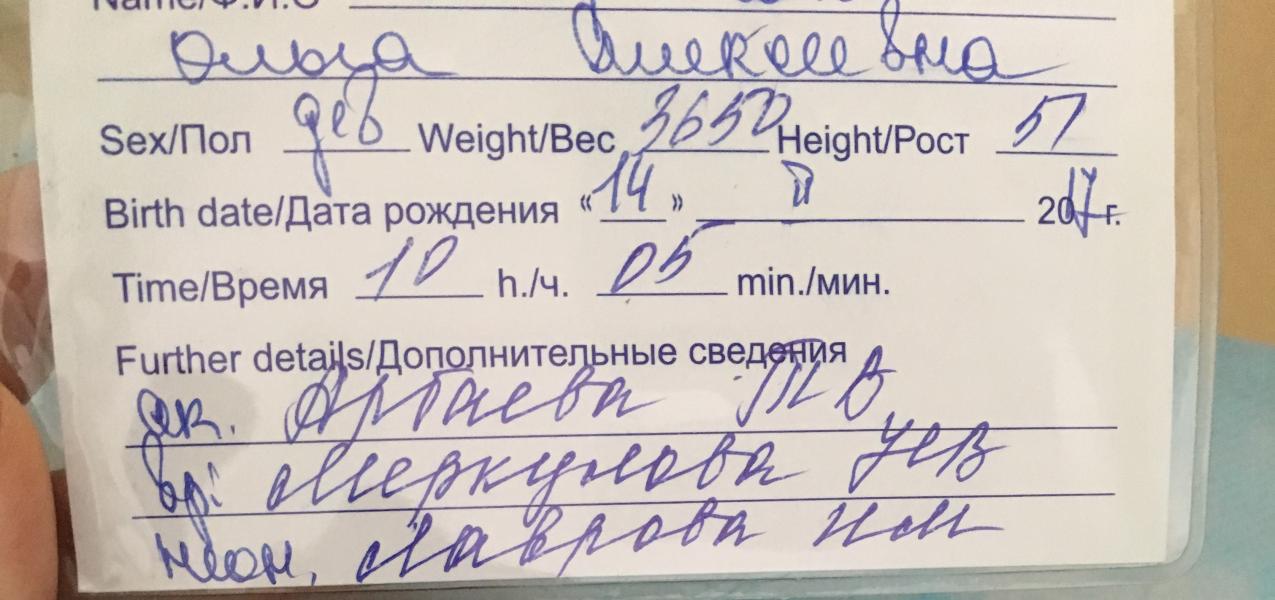 Name/Ф.И.О
Ольга Алексеевна
Sex/Пол дев Weight/Вес 3650 Height/Рост 51
Birth date/Дата рождения «14» II 2017 г.
Time/Время 10 h./ч. 05 min./мин.
Further details/Дополнительные сведения
ак. Арбаева Т В
вр: Меркулова
неон, Лаврова И М